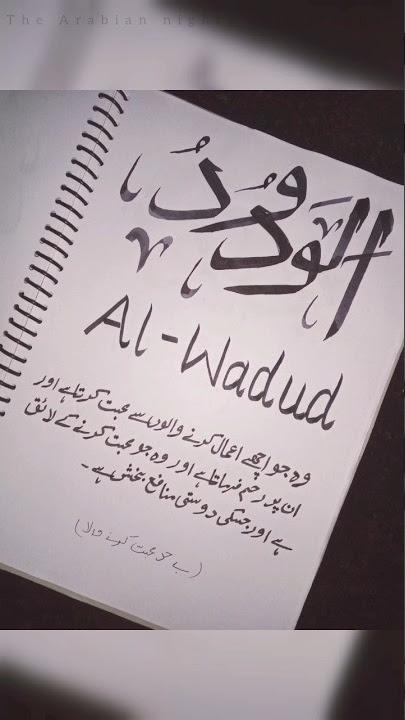 The Arabian nigh
الْوَدُوْدُ
Al-Wadud
وہ جو اچھے اعمال کرنے والوں سے محبت کرتا ہے اور
ان پر رحم فرماتا ہے اور وہ جو محبت کرنے کے لائق
ہے اور جسکی دوستی منافع بخش ہے۔
(بے حد محبت کرنے والا)